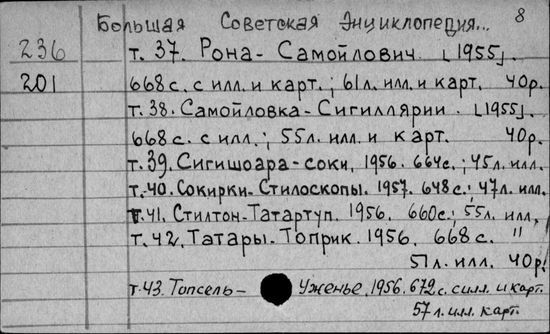 Большая Советская Энциклопедия... 8
236 т. 37. Рона-Самойлович. [1955].
201 668 с. с илл. и карт.; 61 л. илл. и карт. 40р.
т. 38. Самойловка-Сигиллярии. [1955].
668 с. с илл.; 55 л. илл. и карт. 40р.
т. 39. Сигишоара-соки, 1956. 664с.; 45 л. илл.
т. 40. Сокирки-Стилоскопы. 1957. 648 с.; 47 л. илл.
т. 41. Стилтон-Татартуп. 1956. 660с.; 55 л. илл.
т. 42. Татары-Топрик. 1956. 668 с. "
51 л. илл. 40р.
т. 43. Топсель- Уженье. 1956. 672 с. с илл. и карт.
57 л. илл. карт.